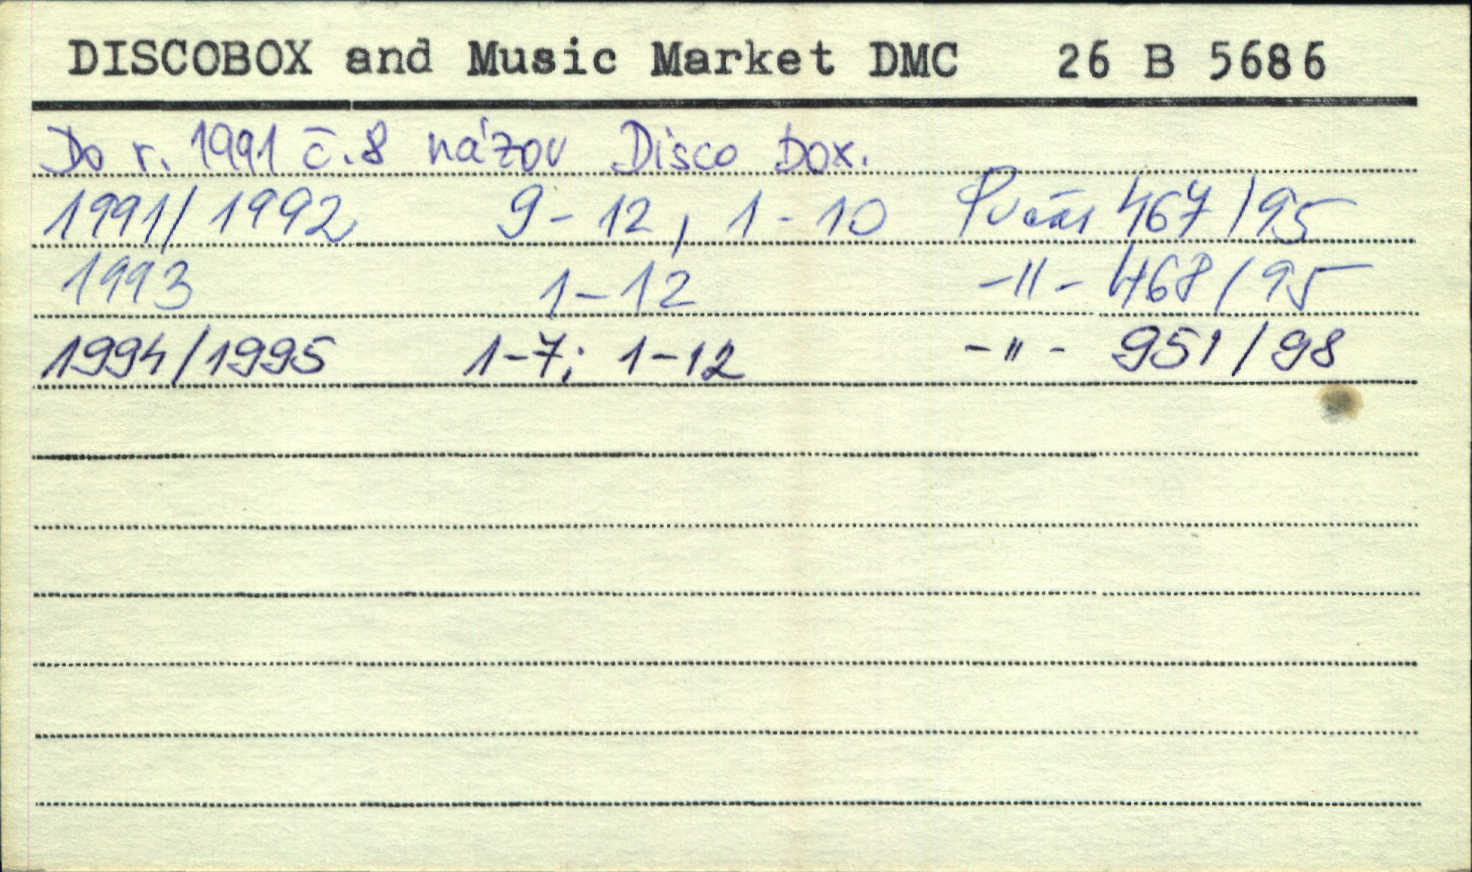 DISCOBOX and Music Market DMC 26 B 5686
Do r. 1991 č.8 názov Disco box.
1991/1992 9-12, 1-10 467/95
1993 1-12 -"- 468/95
1994/1995 1-7; 1-12 -"- 951/98